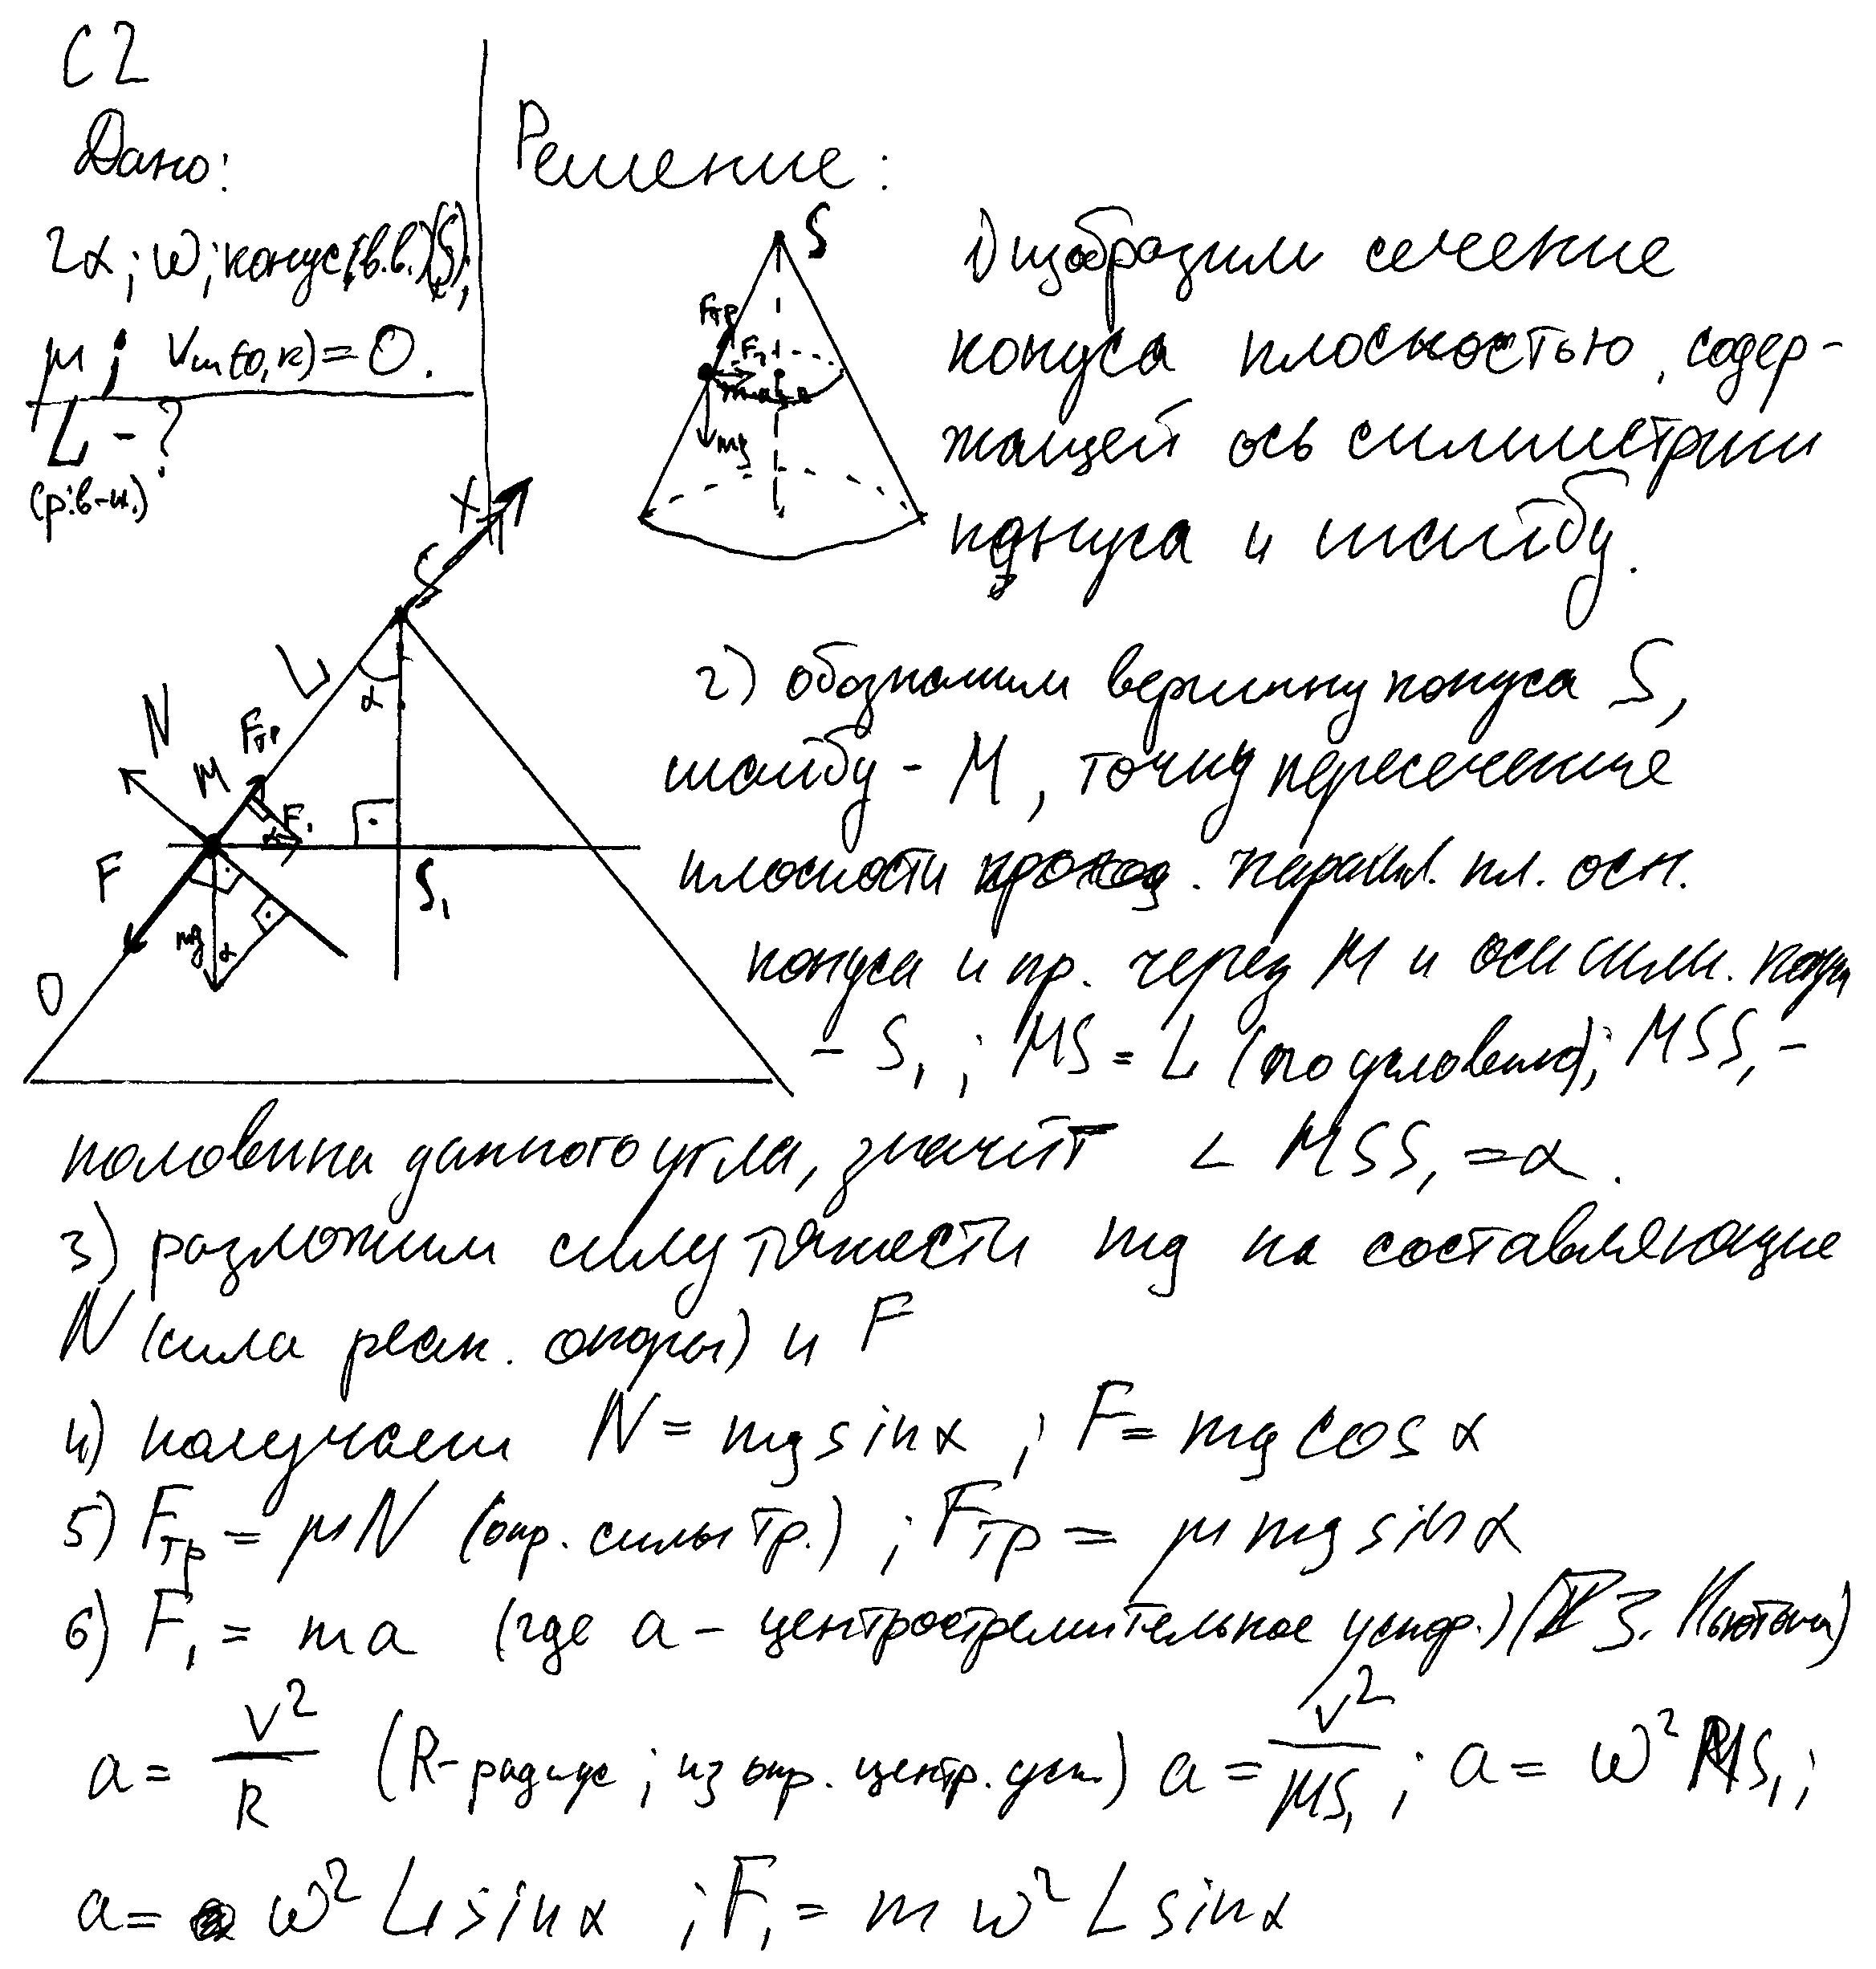 С2
Дано:
2α; ω; конус (в.в.)(S);
μ; Vш(to,к)=0.
L - ?
(р:в-ш.)
Решение:
S
Fтр
F₁
mg
1) изобразим сечение
конуса плоскостью, содер-
жащей ось симметрии
конуса и шайбу.
X
S
L
α
N
Fтр
M
F₁
α
F
S₁
mg
α
O
2) обозначим вершину конуса S,
шайбу - M, точку пересечение
плоскости проход. паралл. пл. осн.
конуса и пр. через M и оси симм.
- S₁; MS = L (по условию); MSS₁ -
половина данного угла, значит ∠ MSS₁ = α.
3) разложим силу тяжести mg на составляющие
N (сила реак. опоры) и F
4) получаем N = mg sin α ; F = mg cos α
5) Fтр = μN (опр. силы тр.) ; Fтр = μ mg sin α
6) F₁ = ma (где a - центростремительное ускор.) (II З. Ньютона)
a = V²/R (R - радиус; из опр. центр. уск.) a = V²/MS₁ ; a = ω² MS₁ ;
a = ω² L sin α ; F₁ = m ω² L sin α